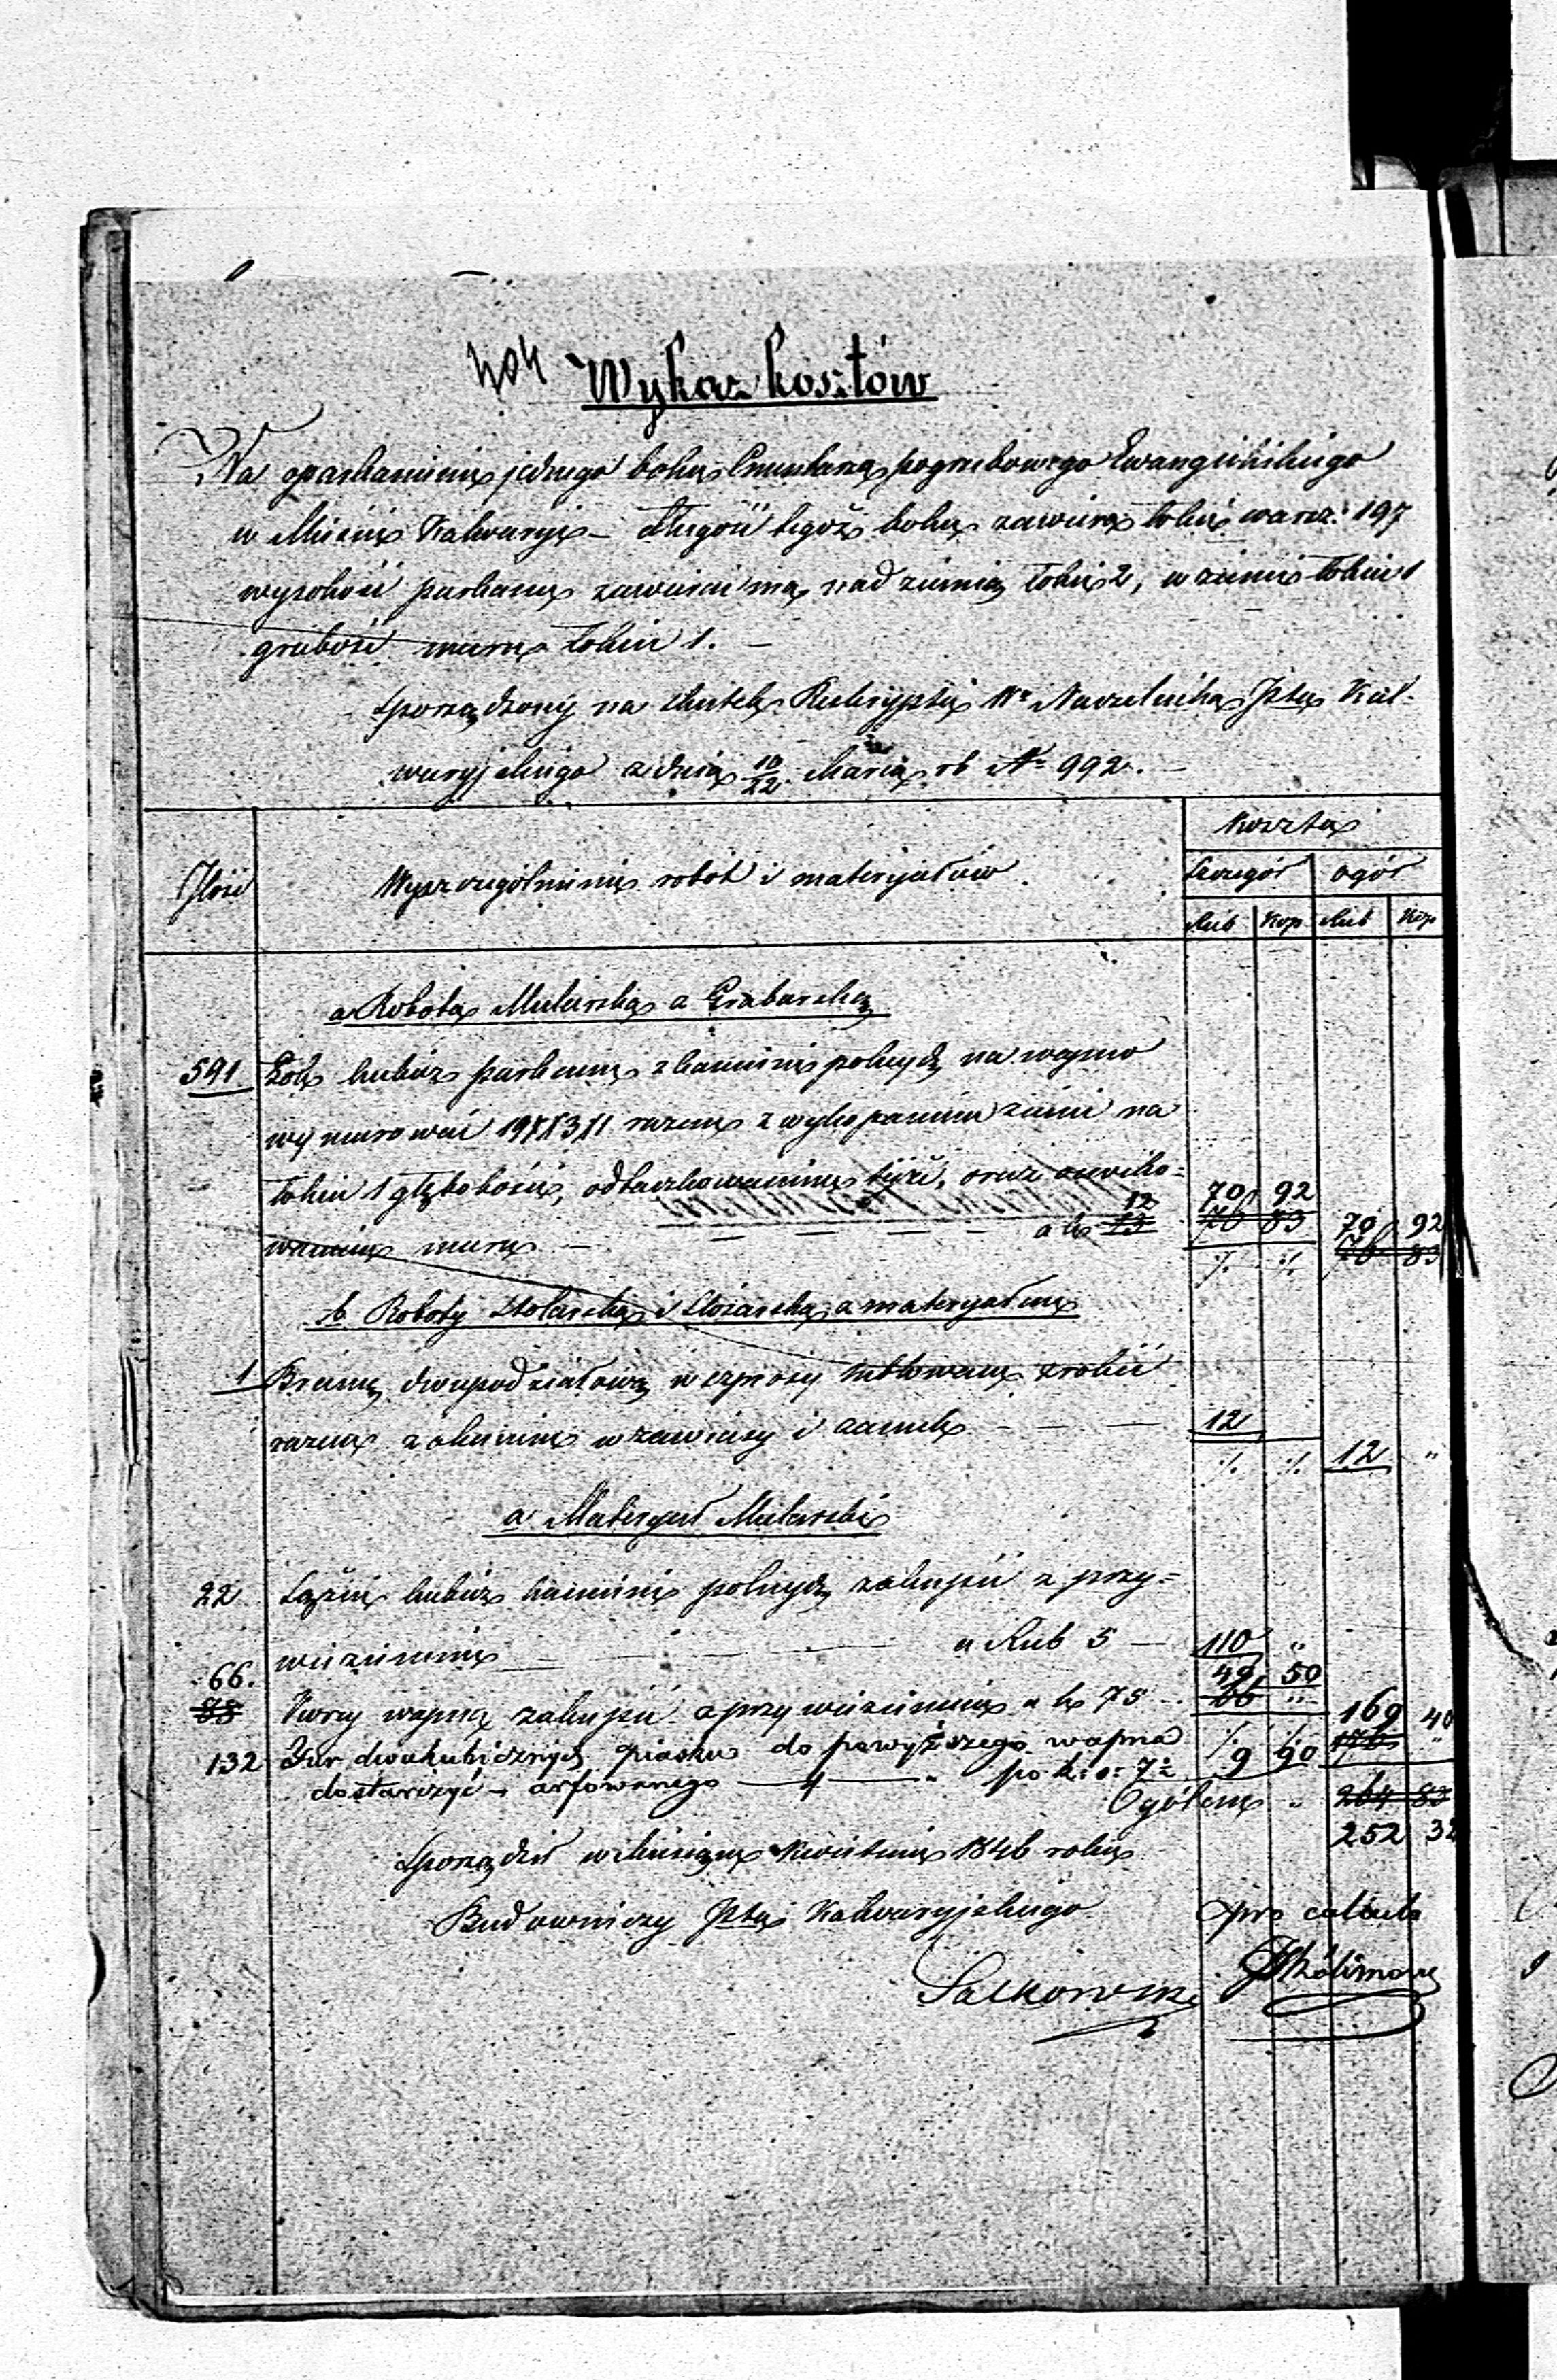 Wykaz kosztów
Na oparkanienie jednego boku Cmentarza pogrzebowego Ewangielikiego
w Mieście Kalwaryi – długość tegoż boku zawiera łokci warsz: 197
wysokość parkanu zawierać ma nad ziemią łokci 2, w ziemi łokieć 1
grubość muru łokieć 1. –
Sporządzony na skutek Reskryptu Wo Naczelnika Ptu Kal-
waryjskiego z dnia 10/22 Marca rb No 992. –
Koszta
Ilość Wyszczególnienie robót i materyałów Szczegół ogół
Rub Kop Rub Kop
a Robota Mularska a Grabarska
591 Łok kubicz parkanu z kamienia polnych na wapno
wymurować 197/3/1 razem z wykopaniem ziemi na
łokieć 1 głębokości, oraz
12 70 92
waniem muru – – – – a k 13 76 83 70 92
76 83
b Roboty Stolarska i Ślosarska z materyałem
1 Bramę dwupodziałową w szpiosy zrobić
razem z okuciem w zawiasy i zamek – – – 12
12 "
a Materyał Mularski
22 Sążni kubicz kamieni polnych zakupić z przy-
wiezieniem – – – a Rub 5 – 110 "
66. 49 50
88 Korcy wapna zakupić z przywiezieniem a k 75 – 66 " 169 40
132 Fur dwukubicznych piasku do powyższego wapna 9 90 176 "
dostarczyć – arfowanego – " – " po k: s: 7½
Ogółem " 264 83
252 32
Sporządził w miesiącu Kwietniu 1846 roku
Budowniczy Ptu Kalwaryjskiego pro calculo